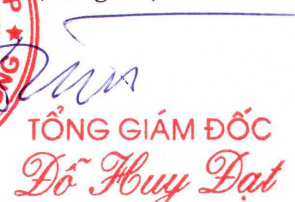 TỔNG GIÁM ĐỐC
Đỗ Huy Đạt